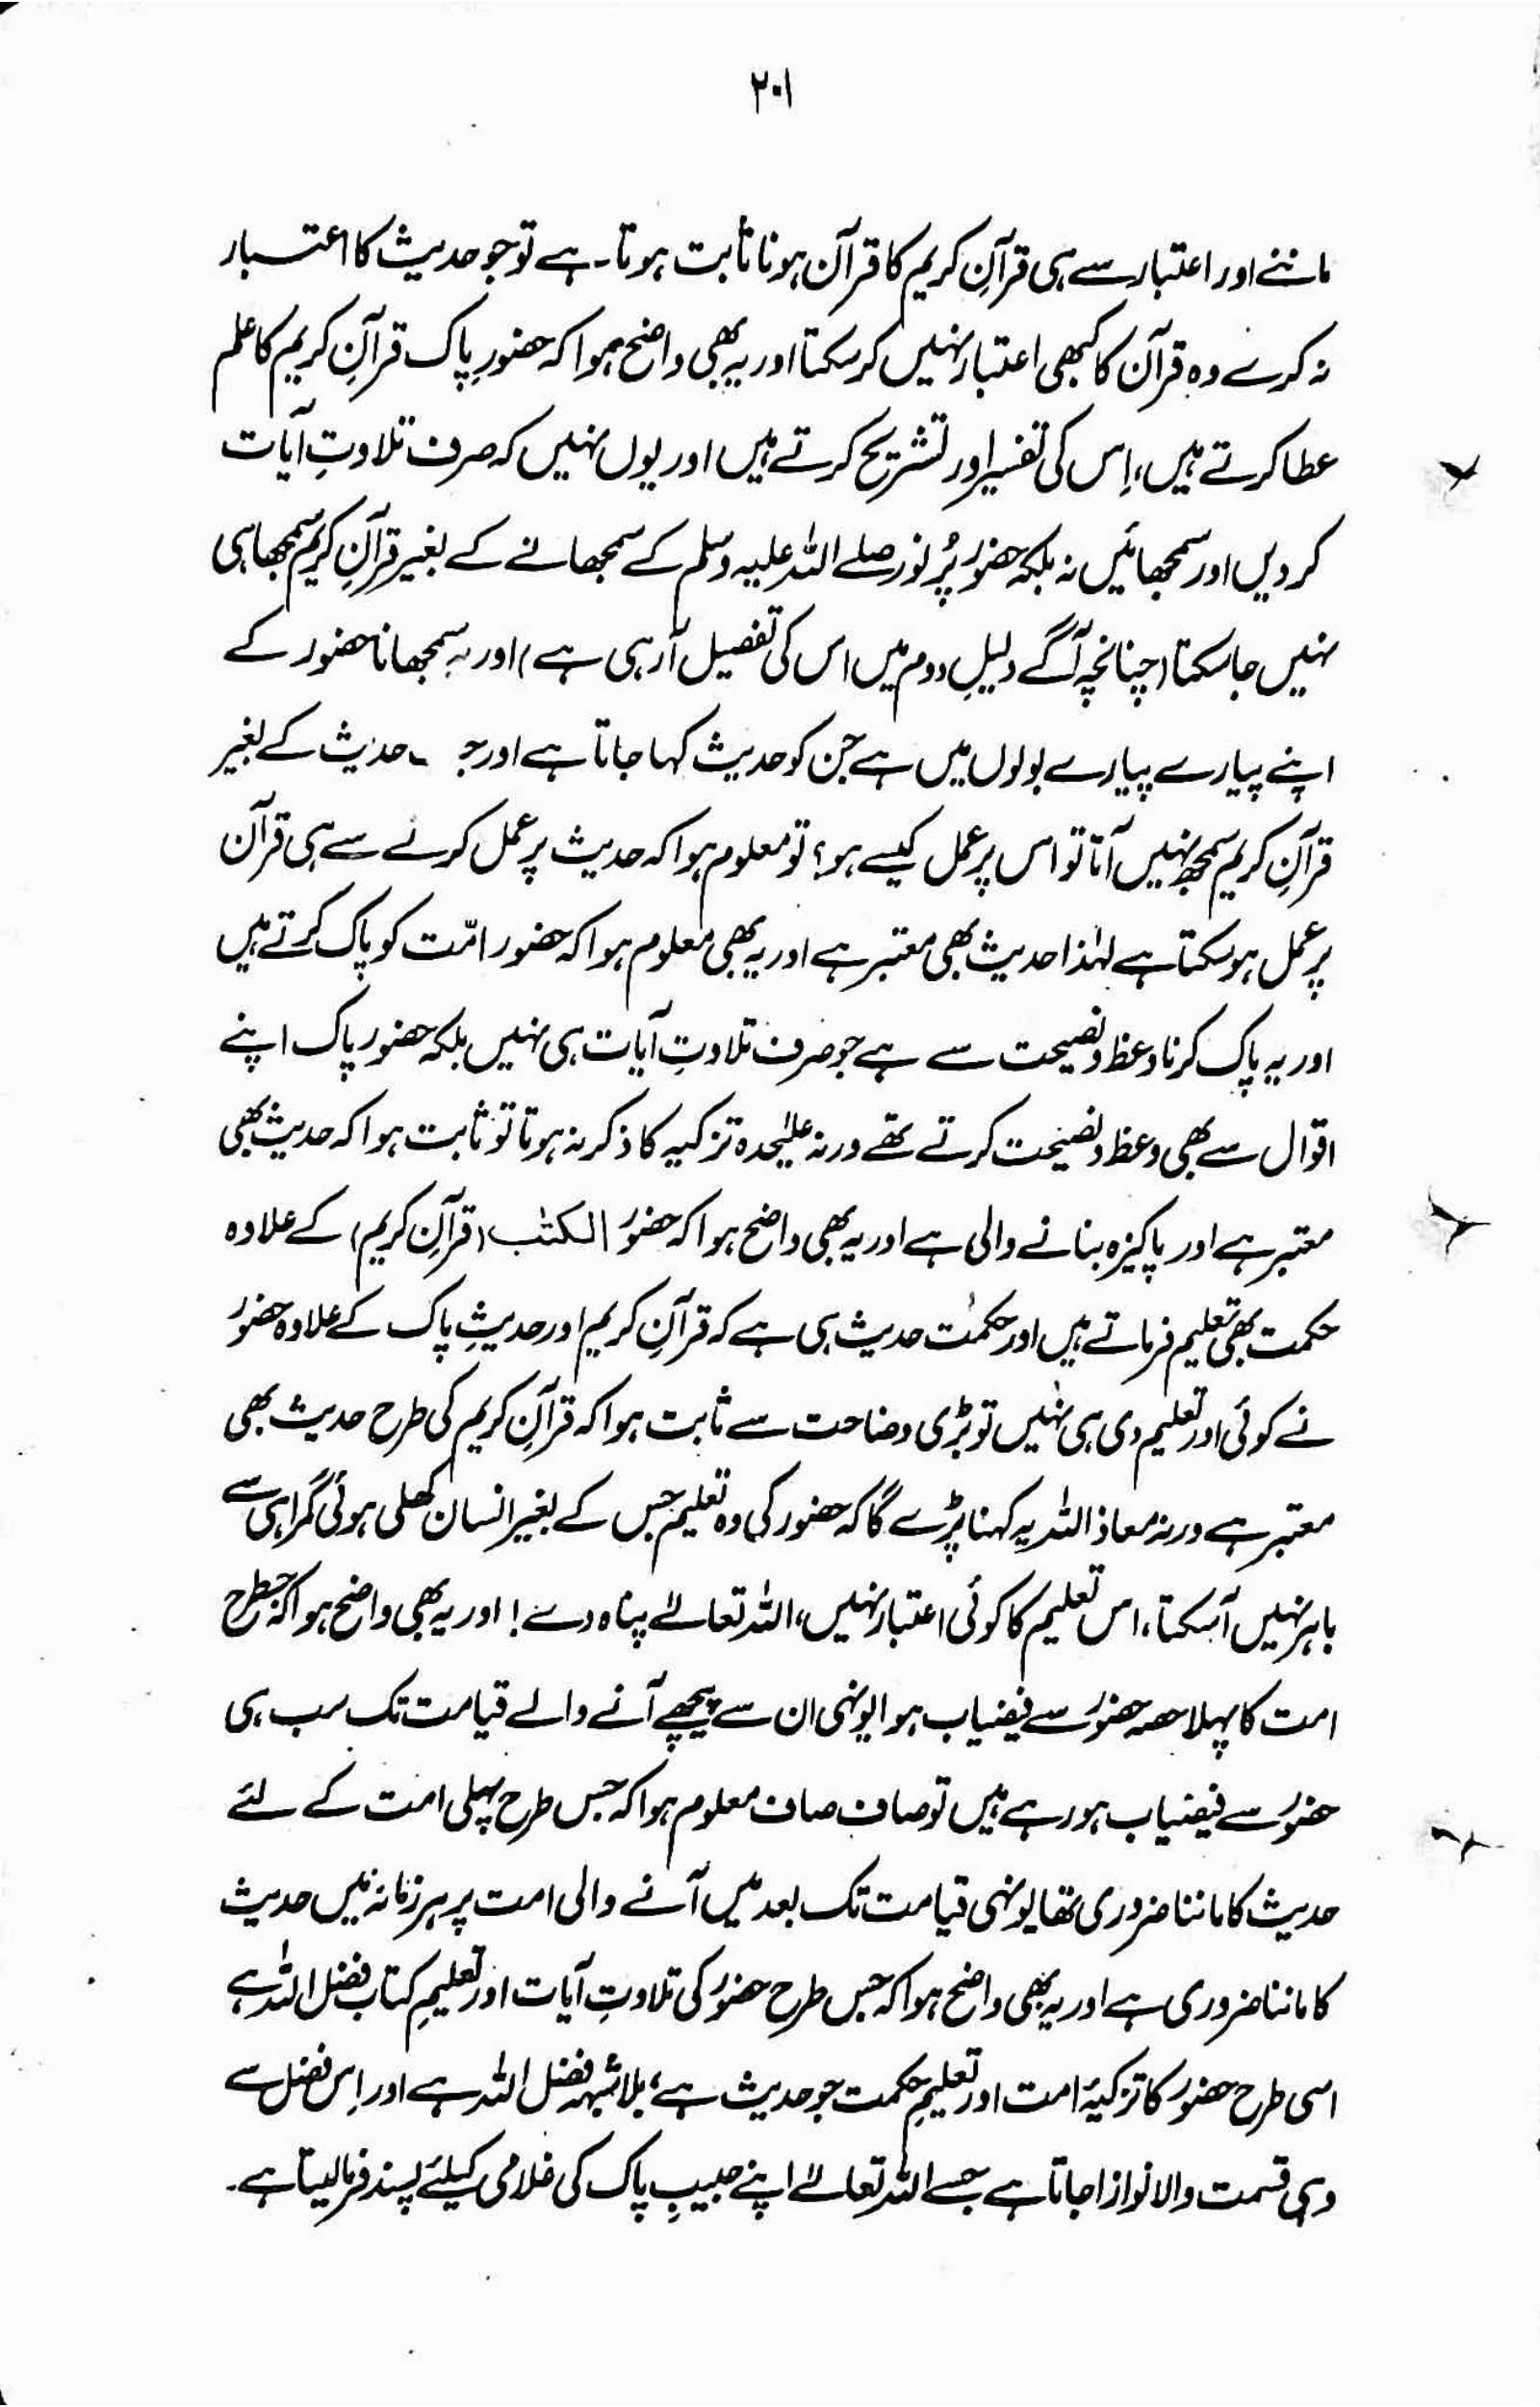 ۲۰۱
ماننے اور اعتبار سے ہی قرآنِ کریم کا قرآن ہونا ثابت ہوتا ہے تو جو حدیث کا اعتبار
نہ کرے وہ قرآن کا کبھی اعتبار نہیں کر سکتا اور یہ بھی واضح ہوا کہ حضورِ پاک قرآنِ کریم کا علم
عطا کرتے ہیں، اِس کی تفسیر اور تشریح کرتے ہیں اور یوں نہیں کہ صرف تلاوتِ آیات
کر دیں اور سمجھائیں نہ بلکہ حضور پُر نور صلے اللہ علیہ وسلم کے سمجھانے کے بغیر قرآنِ کریم سمجھا ہی
نہیں جا سکتا (چنانچہ آگے دلیلِ دوم میں اس کی تفصیل آ رہی ہے) اور یہ سمجھانا حضور کے
اپنے پیارے پیارے بولوں میں ہے جن کو حدیث کہا جاتا ہے اور حدیث کے بغیر
قرآنِ کریم سمجھ نہیں آتا تو اس پر عمل کیسے ہو؛ تو معلوم ہوا کہ حدیث پر عمل کرنے سے ہی قرآن
پر عمل ہو سکتا ہے لہٰذا حدیث بھی معتبر ہے اور یہ بھی معلوم ہوا کہ حضور امّت کو پاک کرتے ہیں
اور یہ پاک کرنا وعظ و نصیحت سے ہے جو صرف تلاوتِ آیات ہی نہیں بلکہ حضور پاک اپنے
اقوال سے بھی وعظ و نصیحت کرتے تھے ورنہ علیٰحدہ تزکیہ کا ذکر نہ ہوتا تو ثابت ہوا کہ حدیث بھی
معتبر ہے اور پاکیزہ بنانے والی ہے اور یہ بھی واضح ہوا کہ حضورؐ الکتٰب (قرآنِ کریم) کے علاوہ
حکمت بھی تعلیم فرماتے ہیں اور حکمت حدیث ہی ہے کہ قرآنِ کریم اور حدیثِ پاک کے علاوہ حضورؐ
نے کوئی اور تعلیم دی ہی نہیں تو بڑی وضاحت سے ثابت ہوا کہ قرآنِ کریم کی طرح حدیث بھی
معتبر ہے ورنہ معاذ اللہ یہ کہنا پڑے گا کہ حضور کی وہ تعلیم جس کے بغیر انسان کھلی ہوئی گمراہی سے
باہر نہیں آ سکتا، اس تعلیم کا کوئی اعتبار نہیں، اللہ تعالےٰ پناہ دے! اور یہ بھی واضح ہوا کہ جسطرح
امت کا پہلا حصہ حضورؐ سے فیضیاب ہوا یونہی ان سے پیچھے آنے والے قیامت تک سب ہی
حضورؐ سے فیضیاب ہو رہے ہیں تو صاف صاف معلوم ہوا کہ جس طرح پہلی امت کے لئے
حدیث کا ماننا ضروری تھا یونہی قیامت تک بعد میں آنے والی امت پر ہر زمانہ میں حدیث
کا ماننا ضروری ہے اور یہ بھی واضح ہوا کہ جس طرح حضورؐ کی تلاوتِ آیات اور تعلیمِ کتاب فضل اللہ ہے
اسی طرح حضورؐ کا تزکیۂ امت اور تعلیمِ حکمت جو حدیث ہے؛ بلا شبہہ فضل اللہ ہے اور اِس فضل سے
وہی قسمت والا نوازا جاتا ہے جسے اللہ تعالےٰ اپنے حبیبِ پاک کی غلامی کیلئے پسند فرما لیتا ہے۔